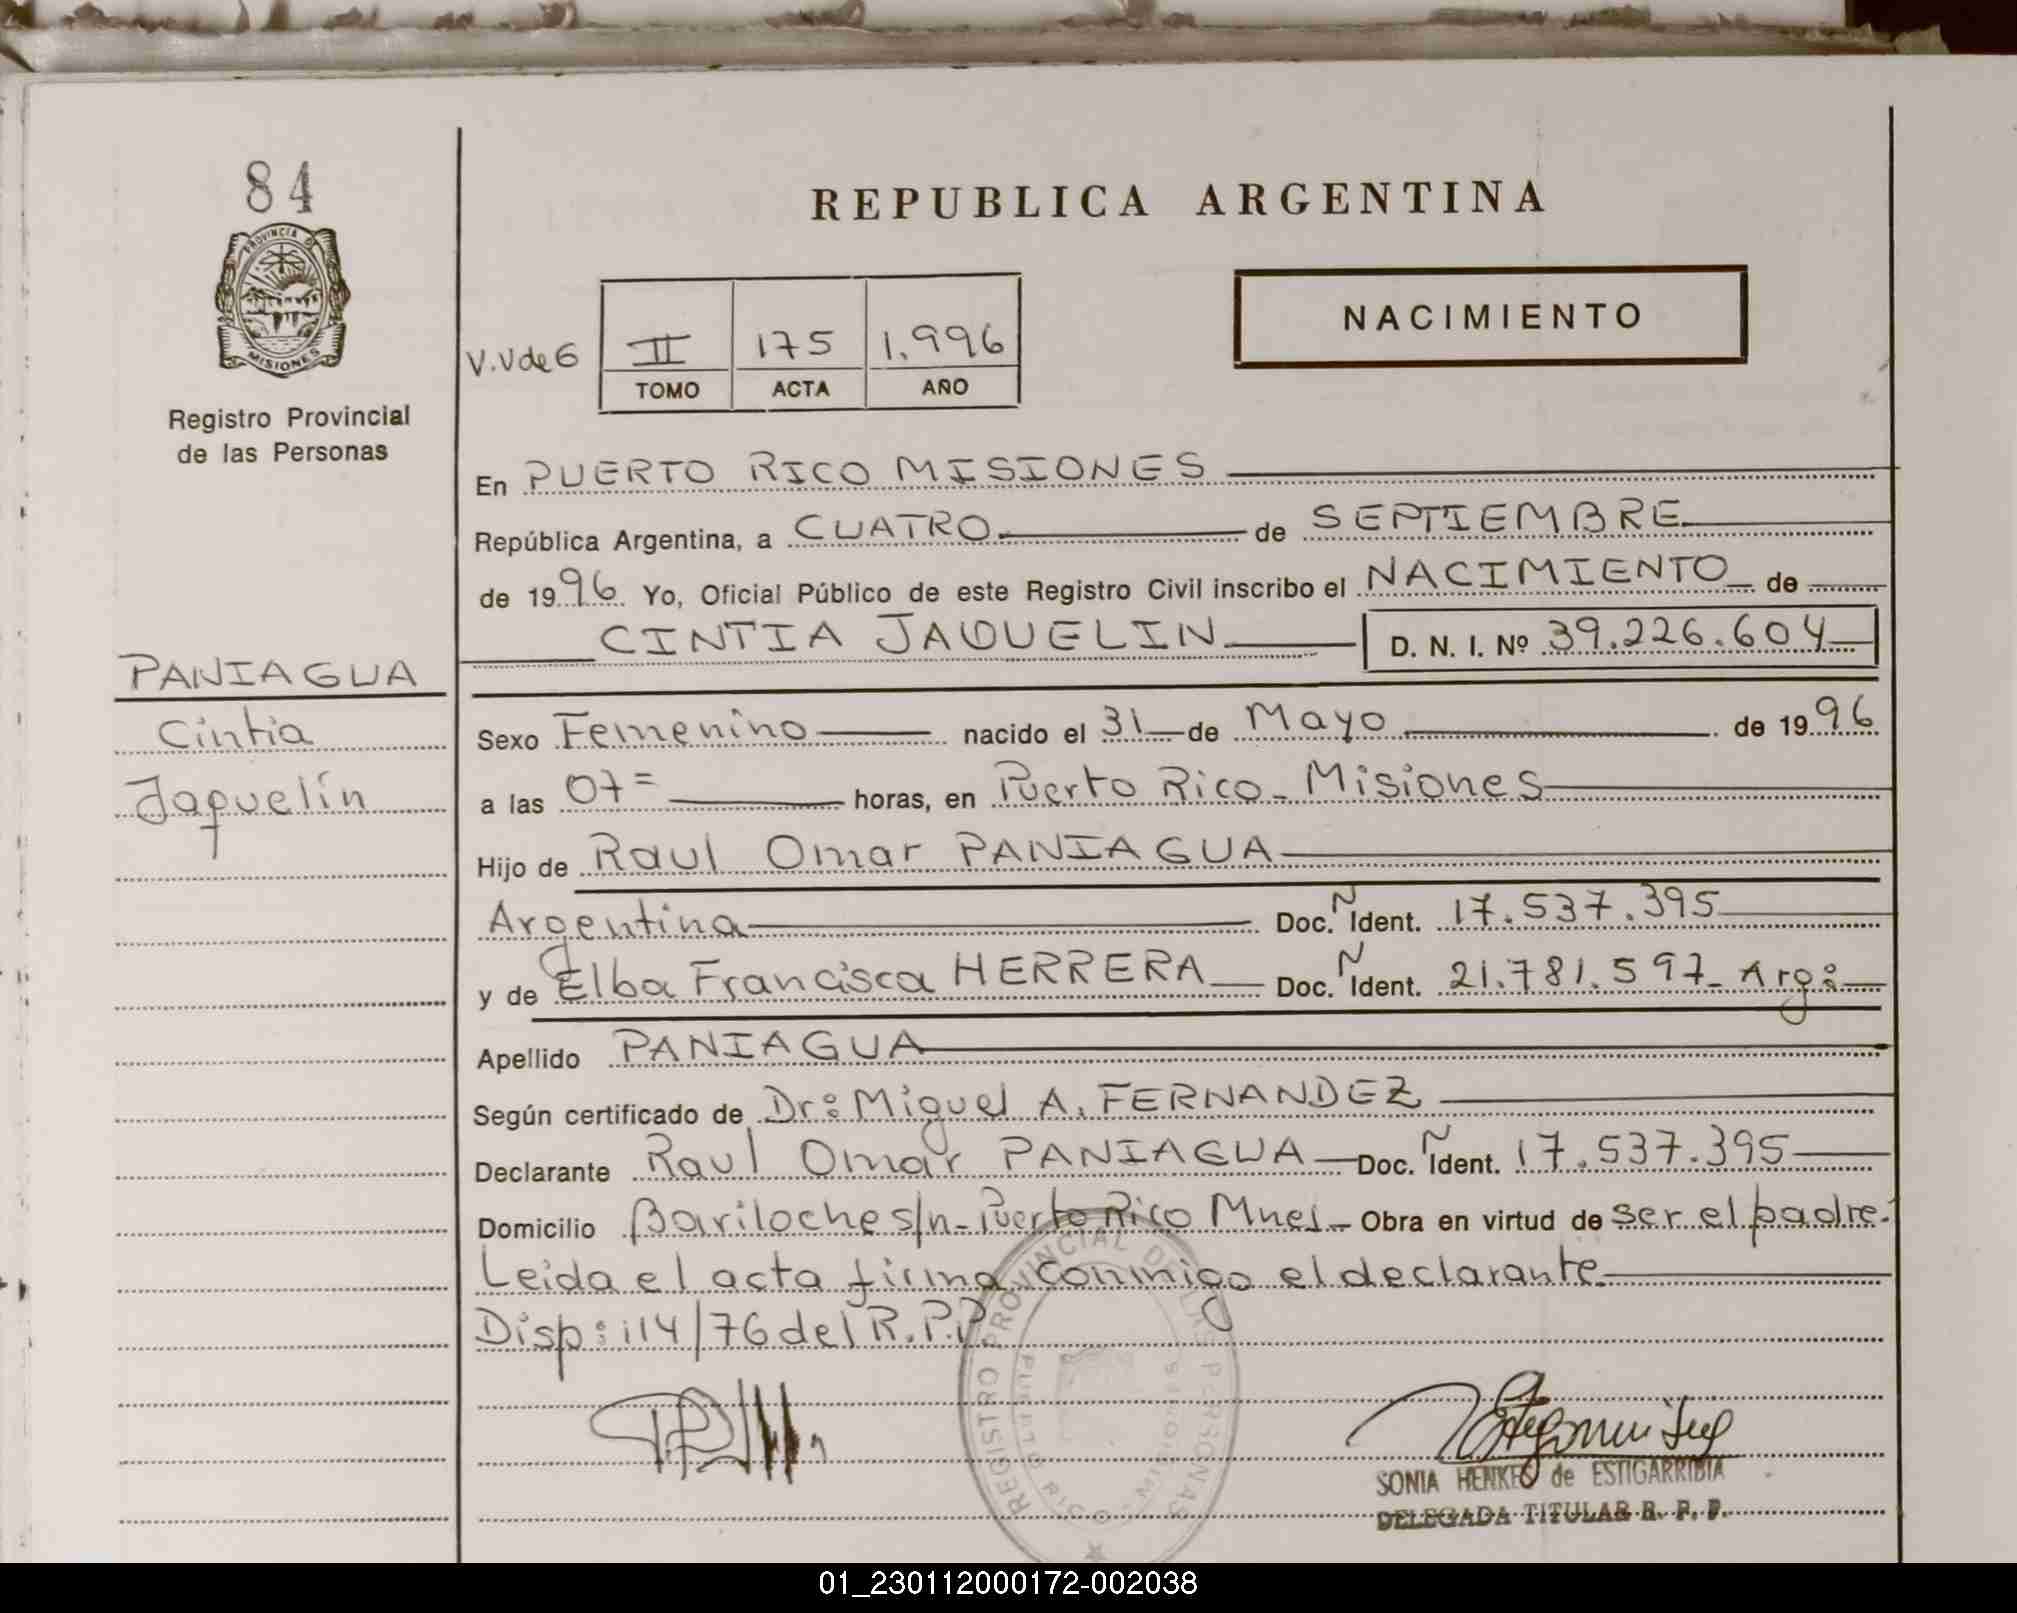 84
PROVINCIA DE
MISIONES
Registro Provincial
de las Personas
PANIAGUA
Cintia
Jaquelín
REPUBLICA ARGENTINA
NACIMIENTO
V.V de 6
II 175 1.996
TOMO ACTA AÑO
En PUERTO RICO MISIONES
República Argentina, a CUATRO de SEPTIEMBRE
de 1996 Yo, Oficial Público de este Registro Civil inscribo el NACIMIENTO de
CINTIA JAQUELIN D. N. I. Nº 39.226.604
Sexo Femenino nacido el 31 de Mayo de 1996
a las 07= horas, en Puerto Rico - Misiones
Hijo de Raul Omar PANIAGUA
Argentina Doc. Ñ Ident. 17.537.395
y de Elba Francisca HERRERA Doc. Ñ Ident. 21.781.597 - Arg:
Apellido PANIAGUA
Según certificado de Dr: Miguel A. FERNANDEZ
Declarante Raul Omar PANIAGUA Doc. Ñ Ident. 17.537.395
Domicilio Bariloche s/n - Puerto Rico Mnes - Obra en virtud de ser el padre.
Leida el acta firma conmigo el declarante
Disp: 114/76 del R.P.P
REGISTRO PROVINCIAL DE LAS PERSONAS
PUERTO RICO - MISIONES
SONIA HENKES de ESTIGARRIBIA
DELEGADA TITULAR R. P. P.
01_230112000172-002038